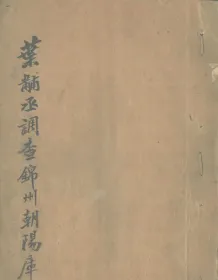 葉黼丞調查錦州朝陽庫